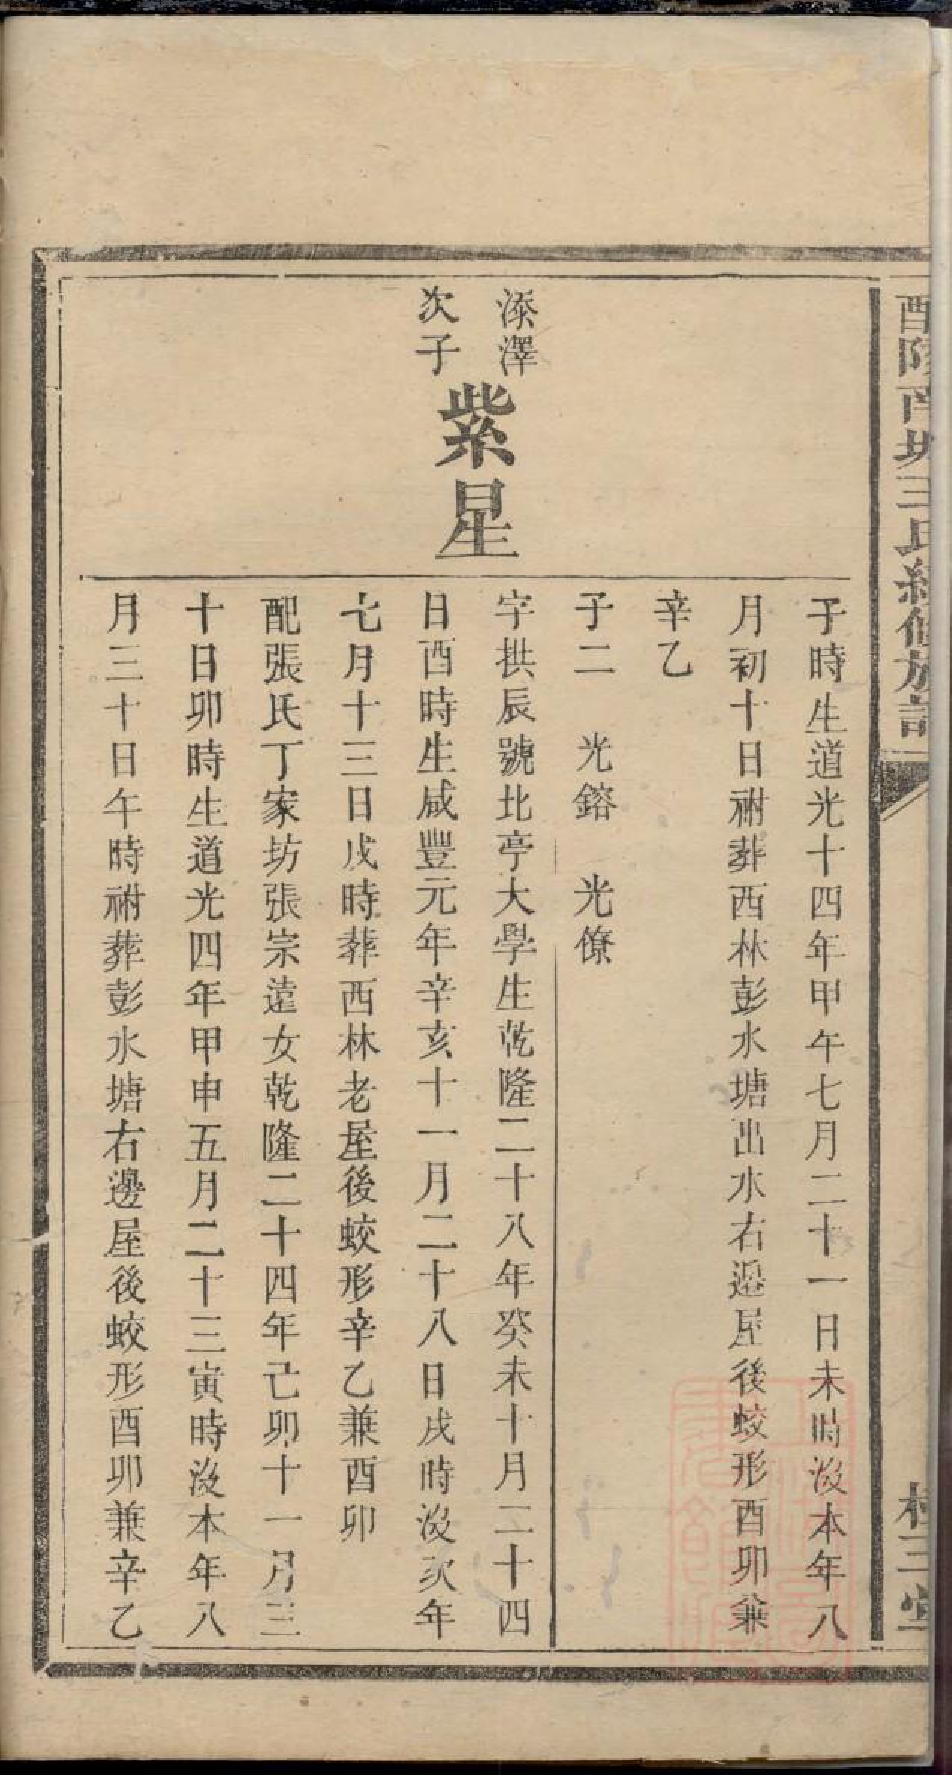 醴陵南城王氏續修族譜
子時生道光十四年甲午七月二十一日未時沒本年八
月初十日祔葬西林彭水塘出水右邊屋後蛟形酉卯兼
辛乙
子二 光鎔 光僚
添澤
次子
紫星
字拱辰號北亭大學生乾隆二十八年癸未十月二十四
日酉時生咸豐元年辛亥十一月二十八日戌時沒次年
七月十三日戌時葬西林老屋後蛟形辛乙兼酉卯
配張氏丁家坊張宗遠女乾隆二十四年己卯十一月三
十日卯時生道光四年甲申五月二十三寅時沒本年八
月三十日午時祔葬彭水塘右邊屋後蛟形酉卯兼辛乙